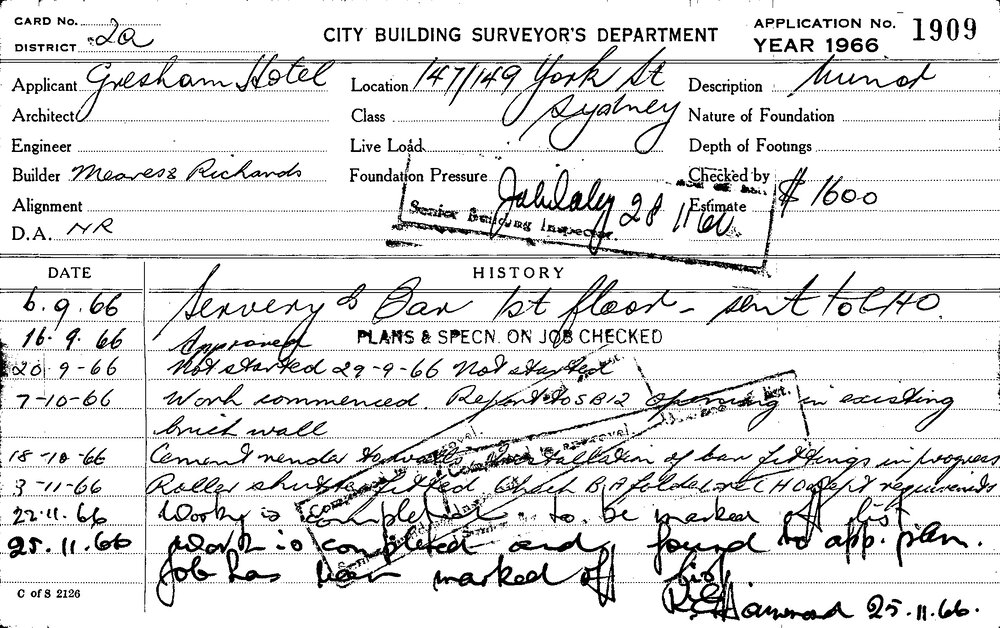 CARD No.
DISTRICT 2a
CITY BUILDING SURVEYOR'S DEPARTMENT
APPLICATION No. 1909
YEAR 1966
Applicant Gresham Hotel Location 147/149 York St Description Minor
Architect Class Sydney Nature of Foundation
Engineer Live Load Depth of Footings
Builder Meares & Richards Foundation Pressure Checked by
Alignment Estimate $ 1600
D.A. NR
28 11 66
Senior Building Inspector.
DATE HISTORY
6.9.66 Servery & Bar 1st floor - sent to CHO.
16.9.66 Approved PLANS & SPECN. ON JOB CHECKED
20-9-66 Not started 29-9-66 Not started
7-10-66 Work commenced. Report to SBI2 opening in existing
brick wall
18-10-66 Cement render to walls Installation of bar fittings in progress
3-11-66 Roller shutter fitted Check B.A folder CHO dept requirements
22.11.66 Work is completed to be marked off list
25.11.66 Work is completed and found to app. plan.
Job has been marked off list
25.11.66.
C of S 2126